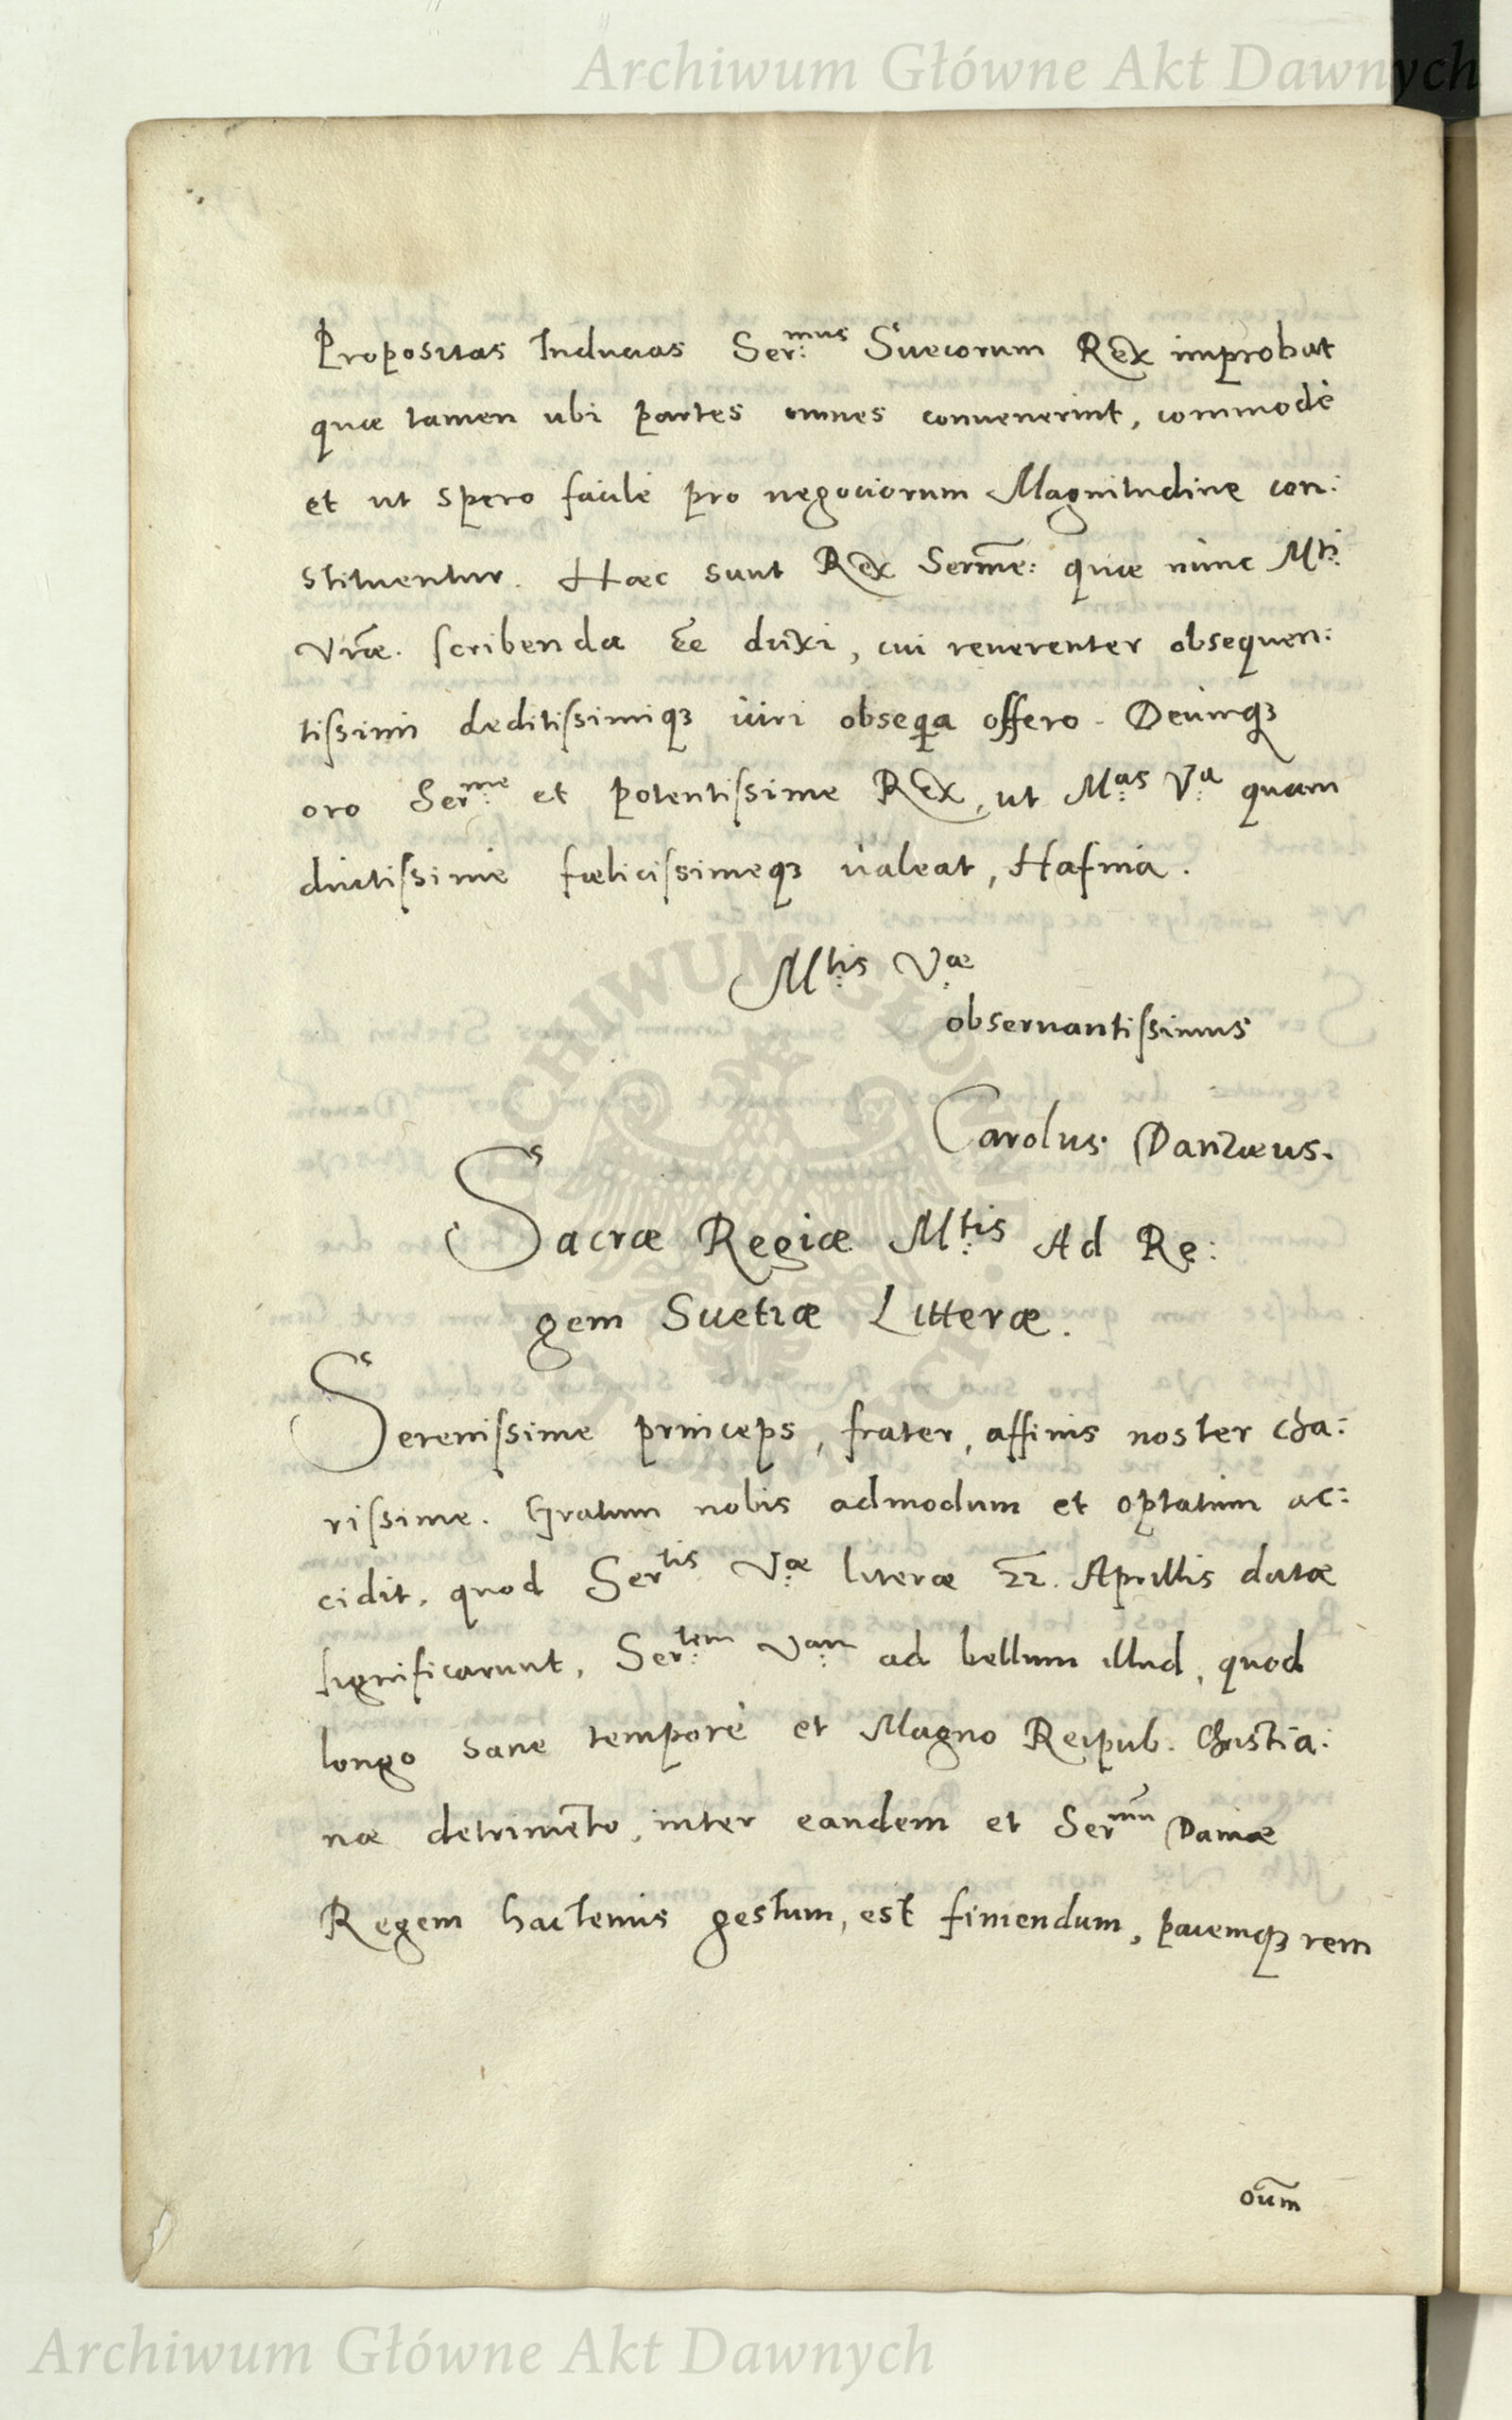 Archiwum Główne Akt Dawnych
Propositas Inducias Ser:mus Suecorum Rex improbat
quae tamen ubi partes omnes convenerint, commodè
et ut spero facilè pro negociorum Magnitudine con:
stituentur. Haec sunt Rex Serme: quae nunc Mti:
Vrae. scribenda ẽe duxi, cui reverenter obsequen:
tissimi deditissimiqȝ viri obseqa offero. Deumqȝ
oro Ser:me et potentissime Rex, ut M:as V:a quam
diutissimè foelicissimeqȝ valeat, Hafnia.
M:tis V:ae
observantissimus
Carolus Danzaeus.
Sacrae Regiae M:tis Ad Re:
gem Suetiae Litterae.
Serenissime princeps, frater, affinis noster cha:
rissime. Gratum nobis admodum et optatum ac:
cidit, quod Sertis V:ae literae 22. Aprillis datae
significarunt, Ser:tem V:am ad bellum illud, quod
longo sane tempore et Magno Reipub. Christia:
nae detrimẽto, inter eandem et Sermũ Daniae
Regem hactenus gestum, est finiendum, pacemqȝ rem
oũm
ARCHIWUM GŁÓWNE AKT DAWNYCH
Archiwum Główne Akt Dawnych